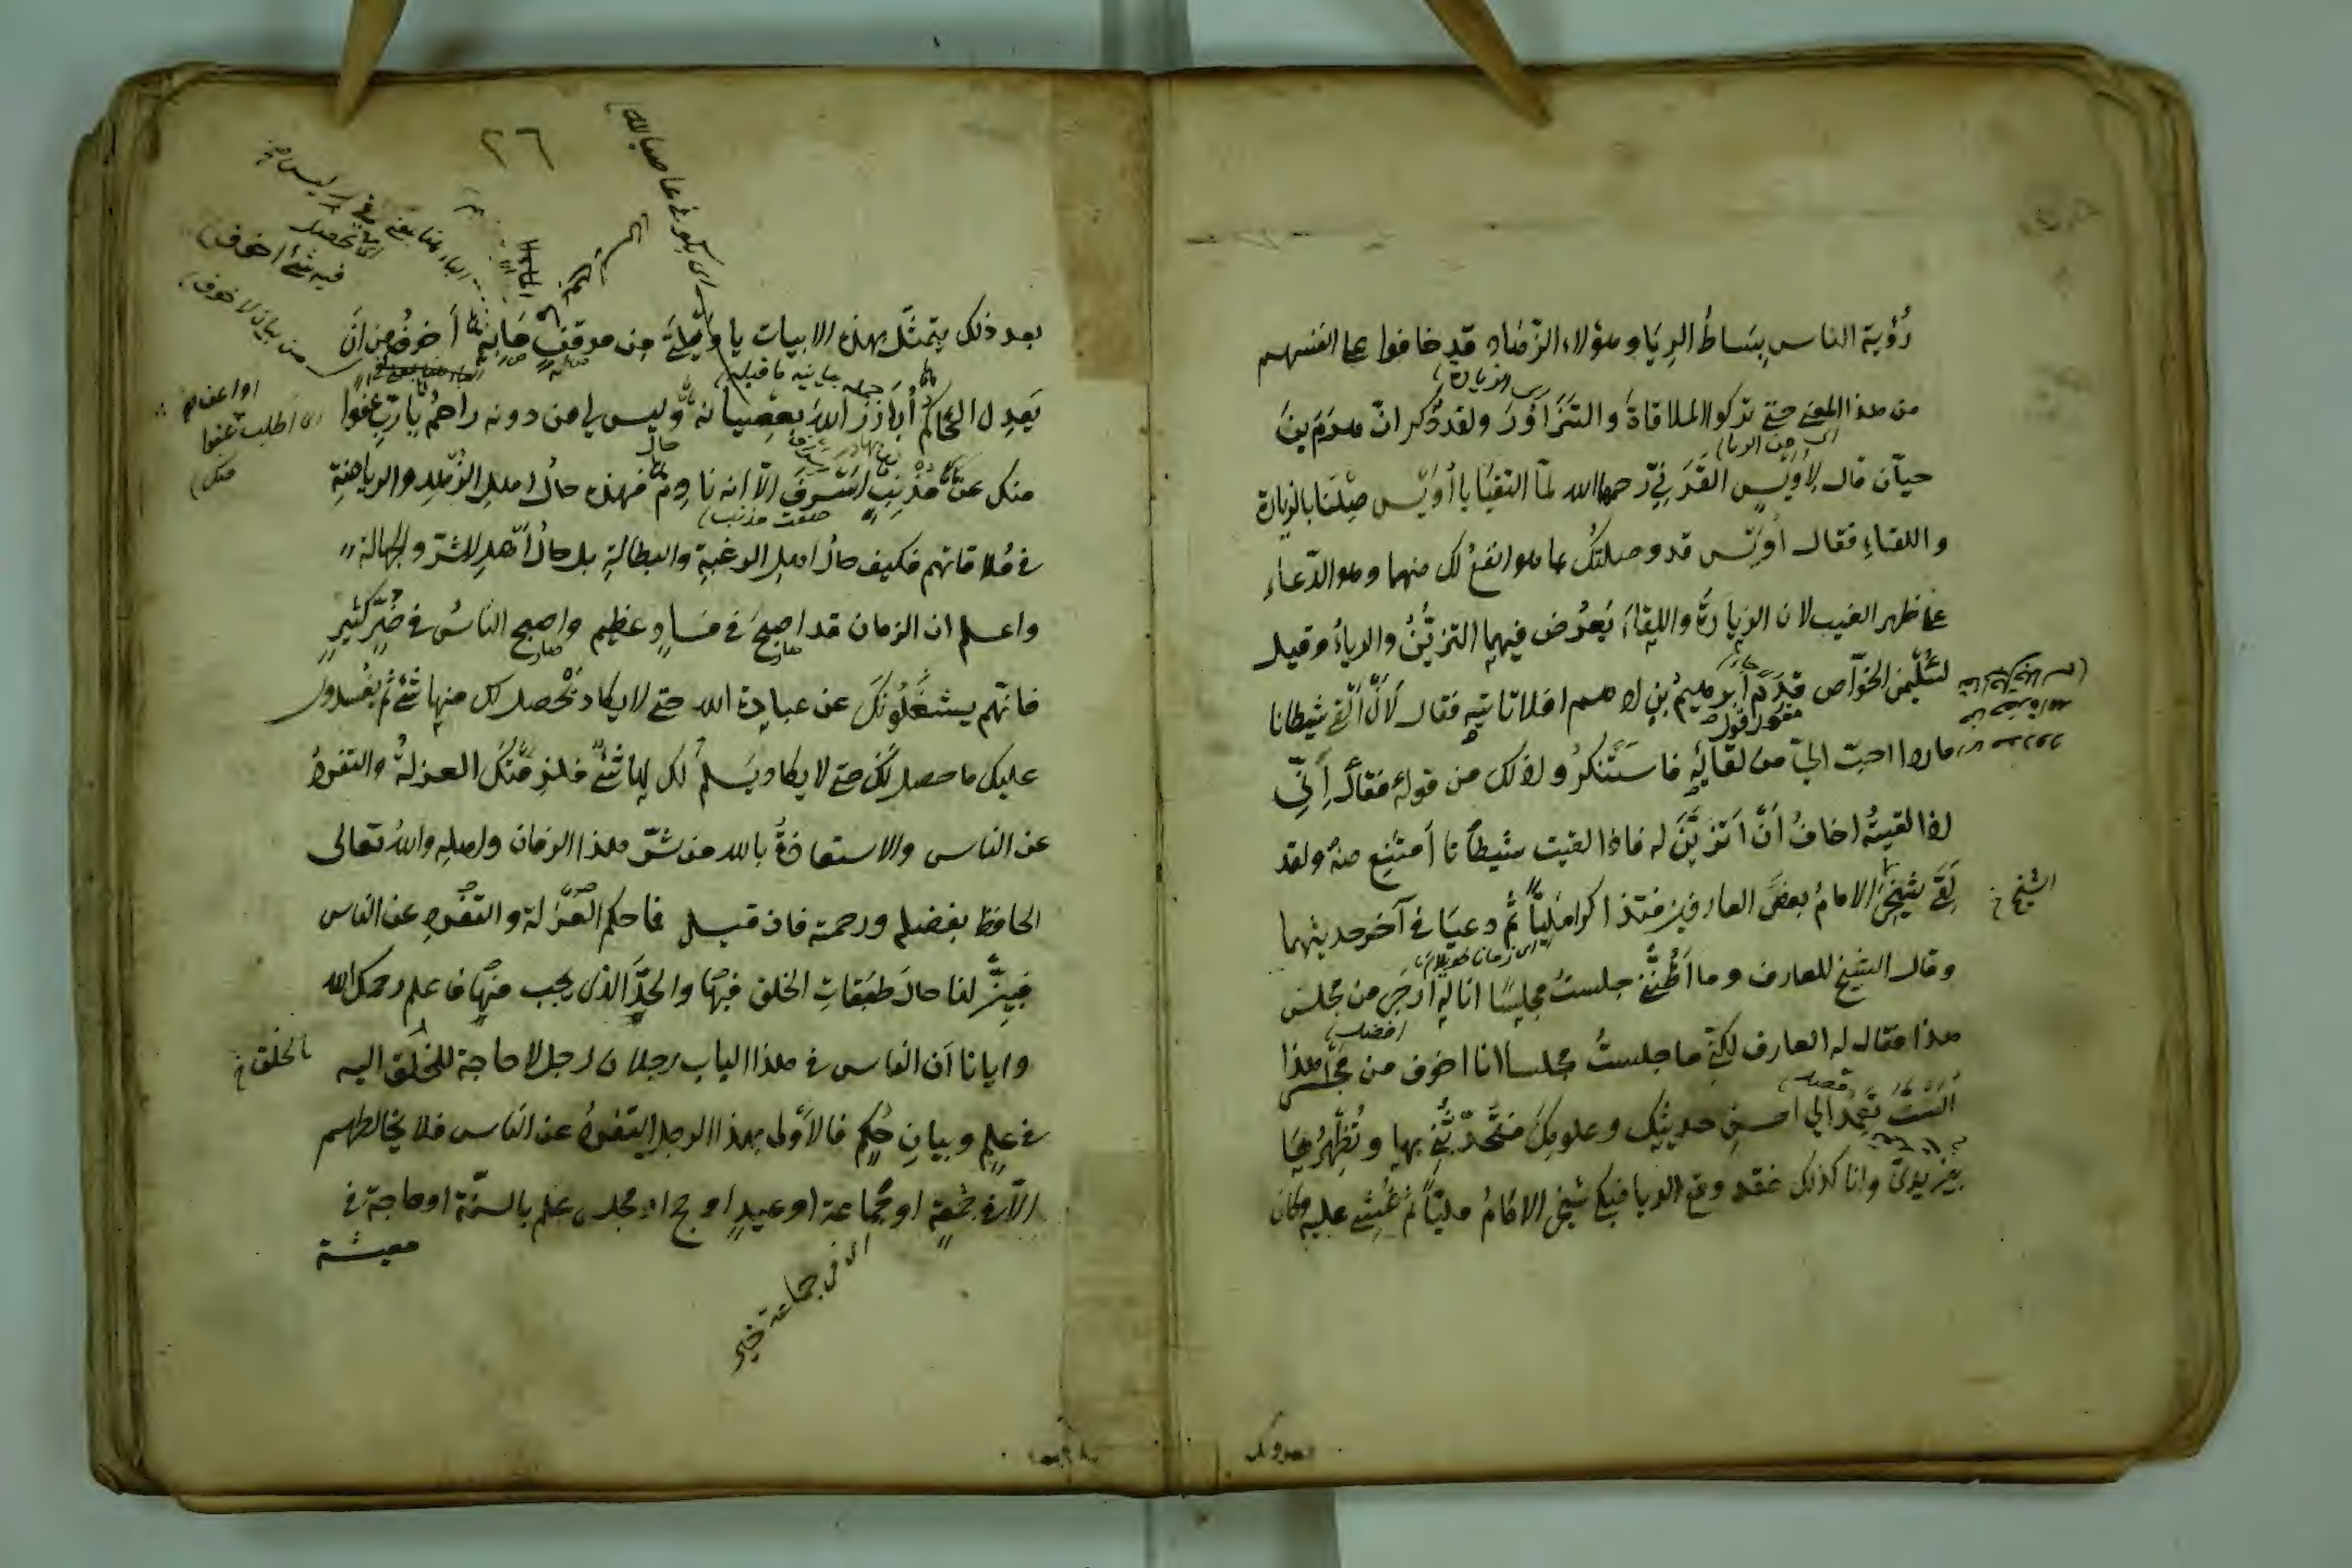 رُؤية الناس بِسَاطُ الرِيَا وهؤلاء الزّهاد قد خافوا على انفسهم
من هذا المعنى حتى تركوا الملاقاةَ والتَزَاوُرَ ولقد ذُكر انّ هَرَم بنَ
حيّان قال لِأُوَيْسٍ القَرَنِيّ رحمهما الله لمّا التقيَا يا أُوَيْس صِلْنَا بالزيارة
واللقاءِ فقال أُوَيْس قد وصلتُك بما هو انفعُ لك منهما وهو الدّعاء
على ظهر الغيب لان الزيارةَ واللِقاءَ يَعْرُض فيهما التزيُّنُ والرياءُ وقيل
لسُلَيْمن الخوّاص قَدِمَ أبرهيمُ بنِ ادهم افلا تاتيه فقال لَأَنْ أَلْقَى شيطانا
ماردا احبّ اليّ من لقائِهِ فاستَنْكرُوا ذلك من قوله فقال إِنّي
اذا لقيتُهُ اخافُ أَنْ اَتزيَّنَ له فاذا لقيت شيطانًا أمتنِع منهُ ولقد
لَقِيَ شيخِي الامامُ بعضَ العارفين فتذاكرا مَلِيًّا ثُمّ دعيَا في آخر حديثهما
الشيخ خ
وقال الشيخ للعارف وما أَظُنُّنِي جلستُ مجلِسًا انا له ارجَى من مجلسي
هذا فقال له العارف لكنّي ما جلستُ مجلسا انا اخوف من مجلسى هذا
أَلَسْتَ تَعْمِدُ الي احسنِ حديثِك وعلومِكَ فتُحدّثُني بها وتُظْهِرُها
بين يديّ وانا كذلك فقد وقع الريا فبكى شيخي الامَامُ مليًّا ثم غُشِيَ عليه وكان
٢٦
بعد ذلك يتمثّل بهذه الابيات يا ويلتَى من موقف مَا بِهِ أَخوفُ مِن أَن
يَعدِل الحَاكم أُبَارِزُ اللهَ بعِصيانه وليس لي من دونه راحمُ يا ربّ عفوا
منك عن مُذْنِبٍ اَسْرَفَ الّا انه نادِمٌ فهذه حالُ اهلِ الزُهد والرياضةِ
صفت مذنب
في مُلاقاتهم فكيف حالُ اهلِ الرغبةِ والبطالةِ بل حالُ أَهلِ الشرّ والجهالة
واعلم ان الزمان قد اصبحَ في فسادٍ عظيم واصبح الناسُ في ضُرٍّ كثيرٍ
فانّهم يشغَلُونَكَ عن عبادة الله حتى لا يكاد يَحْصل لك منها شئٌ ثم يُفْسِدون
عليك ما حصل لَكَ حتى لا يكاد يَسْلمُ لك منها شئٌ فلزِمَتْكَ العزلةُ والتفردُ
عن الناس والاستعاذةُ بالله من شرّ هذا الزمان واهلِهِ واللهُ تعالى
الحافظ بفضلهِ ورحمته فان قيل فما حكم العُزلة والتفردِ عن الناس
فبيّن لنا حالَ طبَقاتِ الخلق فيها والحدَّ الذى يجب منها فاعلم رحمك الله
وايانا أن الناس في هذا الباب رجلان رجل لا حاجة للخلْق اليه
بالخلق خ
في علمٍ وبيانِ حُكمٍ فالاَولى بهذا الرجل التفردُ عن النّاس فلا يخالطهم
الّا في جُمعةٍ او جماعةٍ او عيدٍ او حج او مجلس علم بالسنّة او حاجة في
معيشة